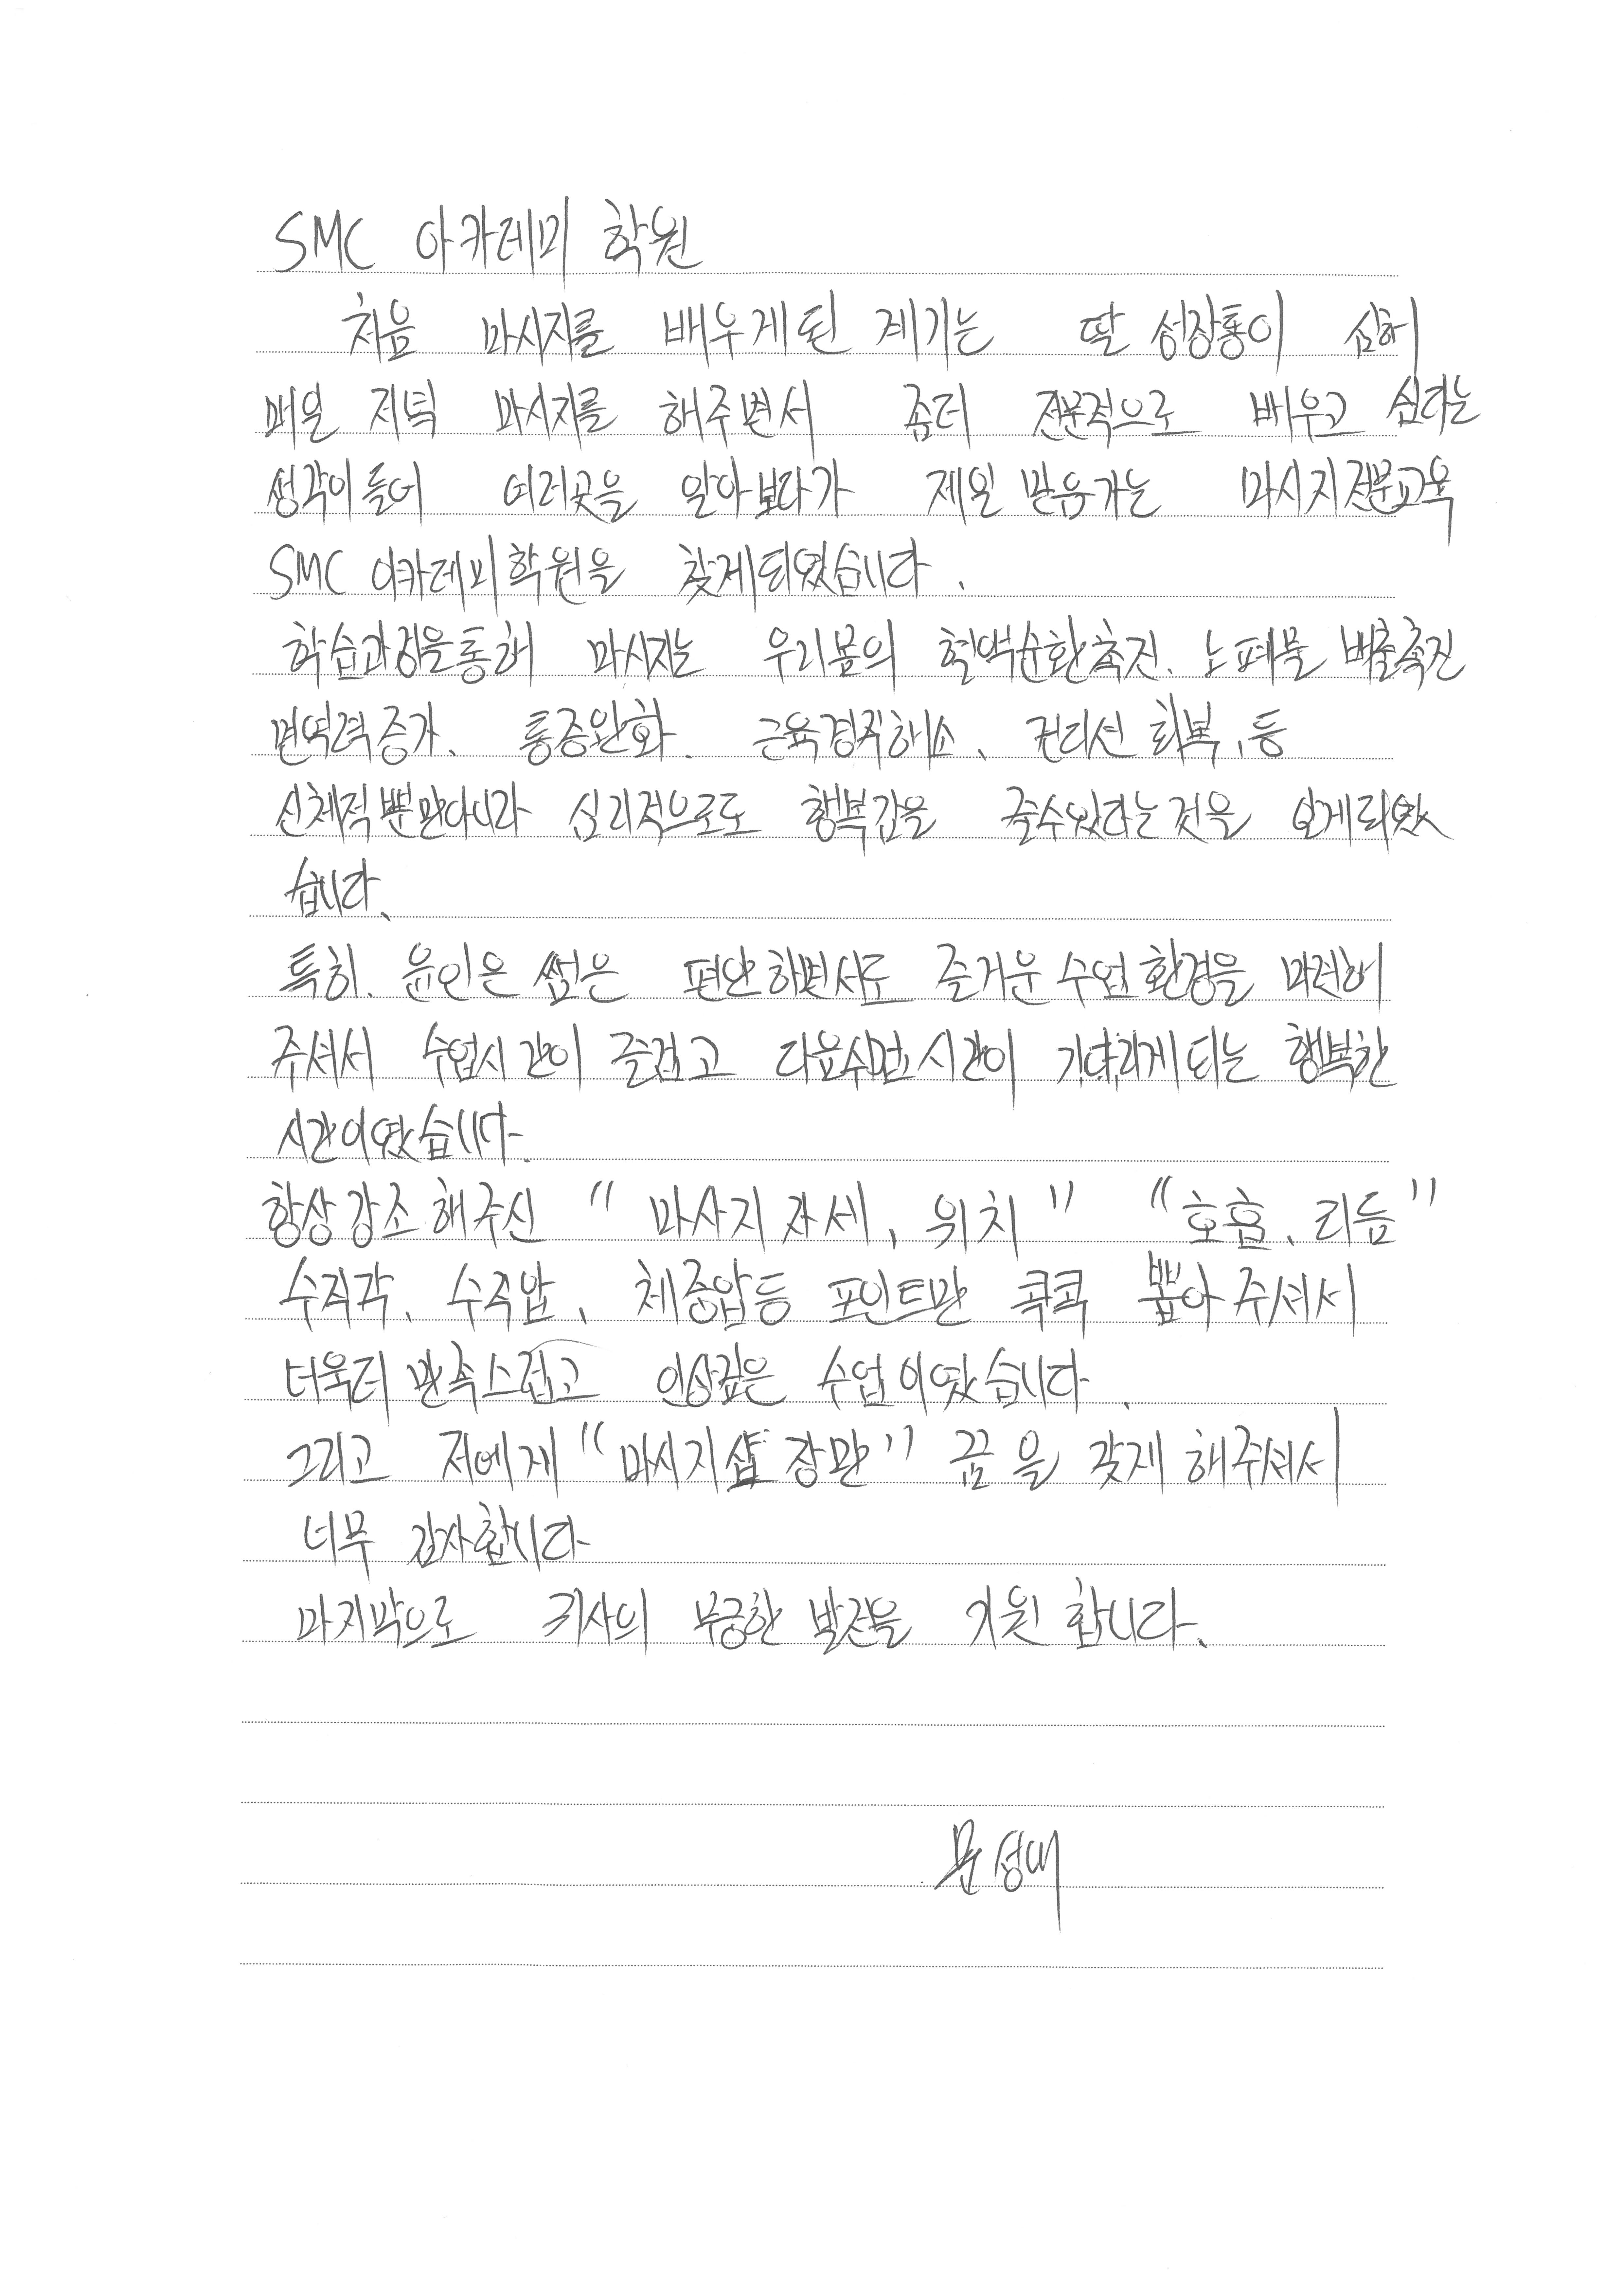 SMC 아카데미 학원
처음 마사지를 배우게된 계기는 딸 성장통이 심해
매일 저녁 마사지를 해주면서 좀더 전문적으로 배우고 싶다는
생각이 들어 여러곳을 알아보다가 제일 믿음가는 마사지전문교육
SMC 아카데미학원을 찾게되었습니다.
학습과정을통해 마사지는 우리몸의 혈액순환촉진, 노폐물 배출촉진
면역력증가, 통증완화, 근육경직해소, 컨디션 회복, 등
신체적뿐만아니라 심리적으로도 행복감을 줄수있다는것을 알게되었
습니다.
특히, 윤인은 쌤은 편안하면서도 즐거운 수업환경을 마련해
주셔서 수업시간이 즐겁고 다음수업시간이 기다려지게되는 행복한
시간이였습니다.
항상강조해주신 " 마사지자세, 위치 " " 호흡, 리듬 "
수직각, 수직압, 체중압등 포인트만 콕콕 뽑아주셔서
더욱더 만족스럽고 인상깊은 수업이였습니다.
그리고 저에게 "마사지샵 장만" 꿈을 갖게 해주셔서
너무 감사합니다
마지막으로 귀사의 무궁한 발전을 기원합니다.
문성배